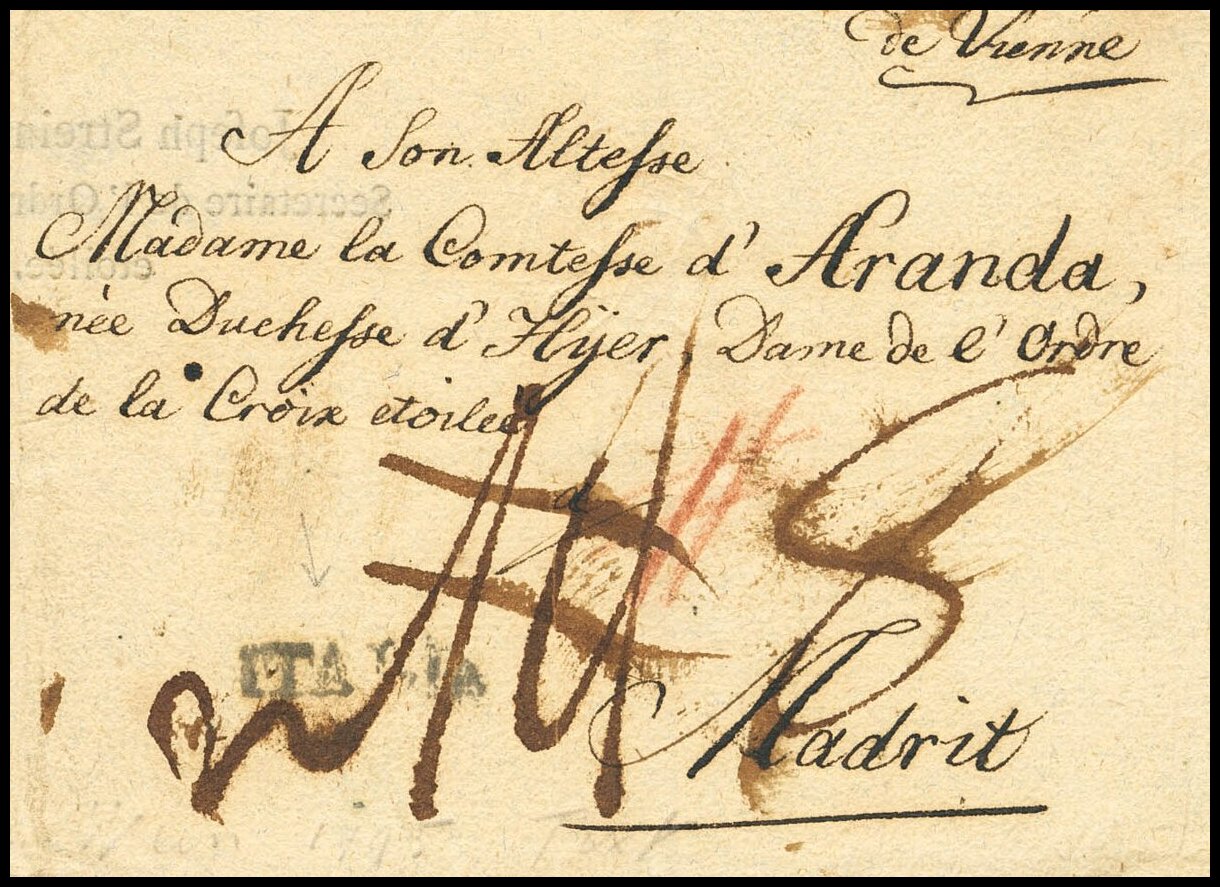 de Vienne
A Son Altesse
Madame la Comtesse d' Aranda,
née Duchesse d' Hijer, Dame de l' Ordre
de la Croix etoilee
à
ITALIA
Madrit
Joseph Strein
Secretaire de l'Ordr
etoilée,